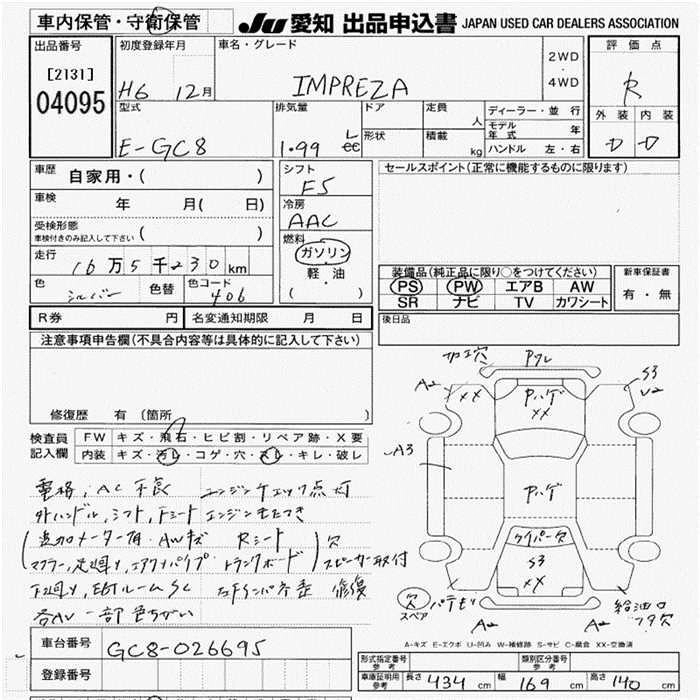 車内保管・守衛保管
JU 愛知 出品申込書 JAPAN USED CAR DEALERS ASSOCIATION
出品番号
[2131]
04095
初度登録年月
H6 12月
車名・グレード
IMPREZA
2WD
・
4WD
評価点
R
型式
E-GC8
排気量
1.99 L cc
ドア
形状
定員 人
積載 kg
ディーラー・並行
モデル年式 年
ハンドル 左・右
外装 内装
D D
車歴 自家用・( )
車検 年 月( 日)
受検形態
車検付きのみ記入して下さい ( )
走行
16万5千230km
色 シルバー 色替 色コード 406
シフト
F5
冷房
AAC
燃料
ガソリン
軽・油
( )
セールスポイント(正常に機能するものに限ります)
装備品(純正品に限り○をつけてください)
PS PW エアB AW
SR ナビ TV カワシート
新車保証書
有・無
R券 円 名変通知期限 月 日
後日品
注意事項申告欄(不具合内容等は具体的に記入して下さい)
修復歴 有(箇所 )
検査員記入欄
FW キズ・飛石・ヒビ割・リペア跡・X要
内装 キズ・汚レ・コゲ・穴・スレ・キレ・破レ
電格,AC不良 エンジンチェック点灯
外ハンドル,シフト,Fシート エンジンもたつき
追加メーター有・AWキズ Rシート
マフラー,足廻り,エアクリパイプ・トランクボード 欠
スピーカー取付
下廻り,EGルームSC
修復
各AW一部色ちがい
加工穴
Pワレ
A2
XX
Pハゲ
XX
S3
U2
A3
Pハゲ
ワイパー欠
S3
XX
欠
スペア
パテモリ
A2
A2
給油口
フタ欠
A-キズ E-エクボ U-凹み W-補修跡 S-サビ C-腐食 XX-交換済
車台番号 GC8-026695
登録番号
形式指定番号
参考
類別区分番号
参考
車庫証明用
参考
長さ 434 cm 幅 169 cm 高さ 140 cm